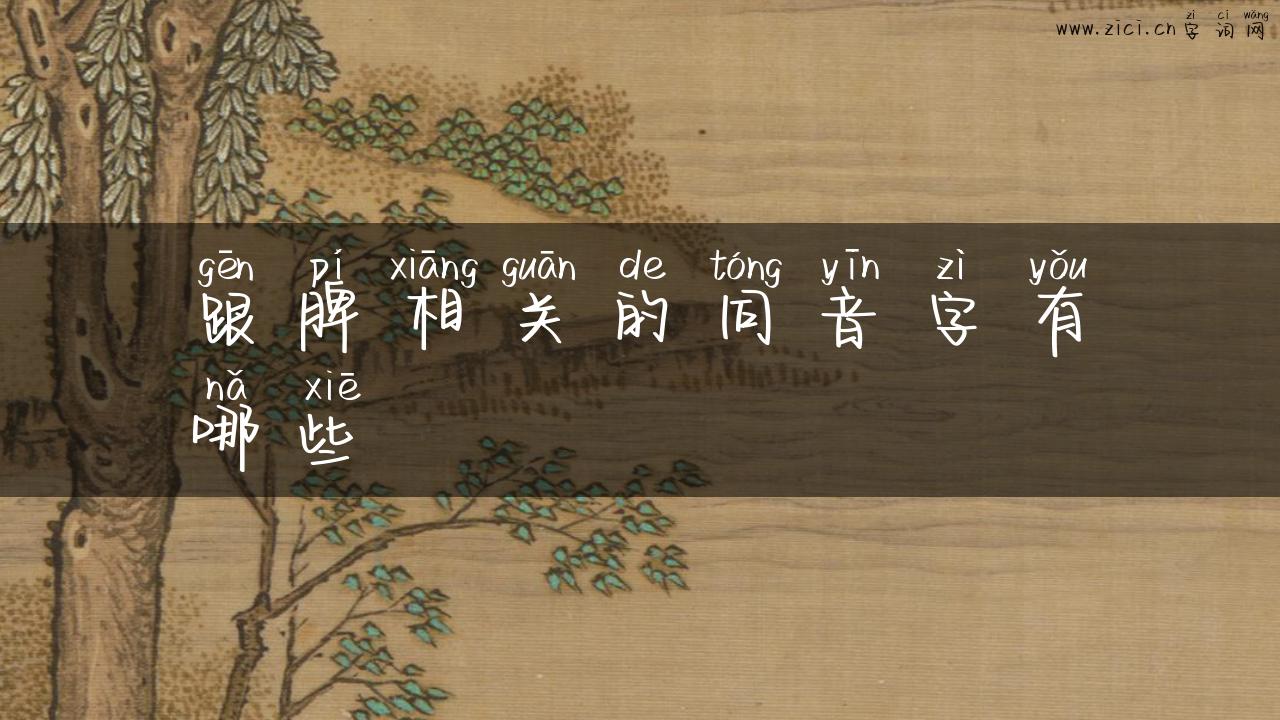 zì cí wǎng
www.zici.cn 字 词 网
gēn pí xiāng guān de tóng yīn zì yǒu
跟 脾 相 关 的 同 音 字 有
nǎ xiē
哪 些